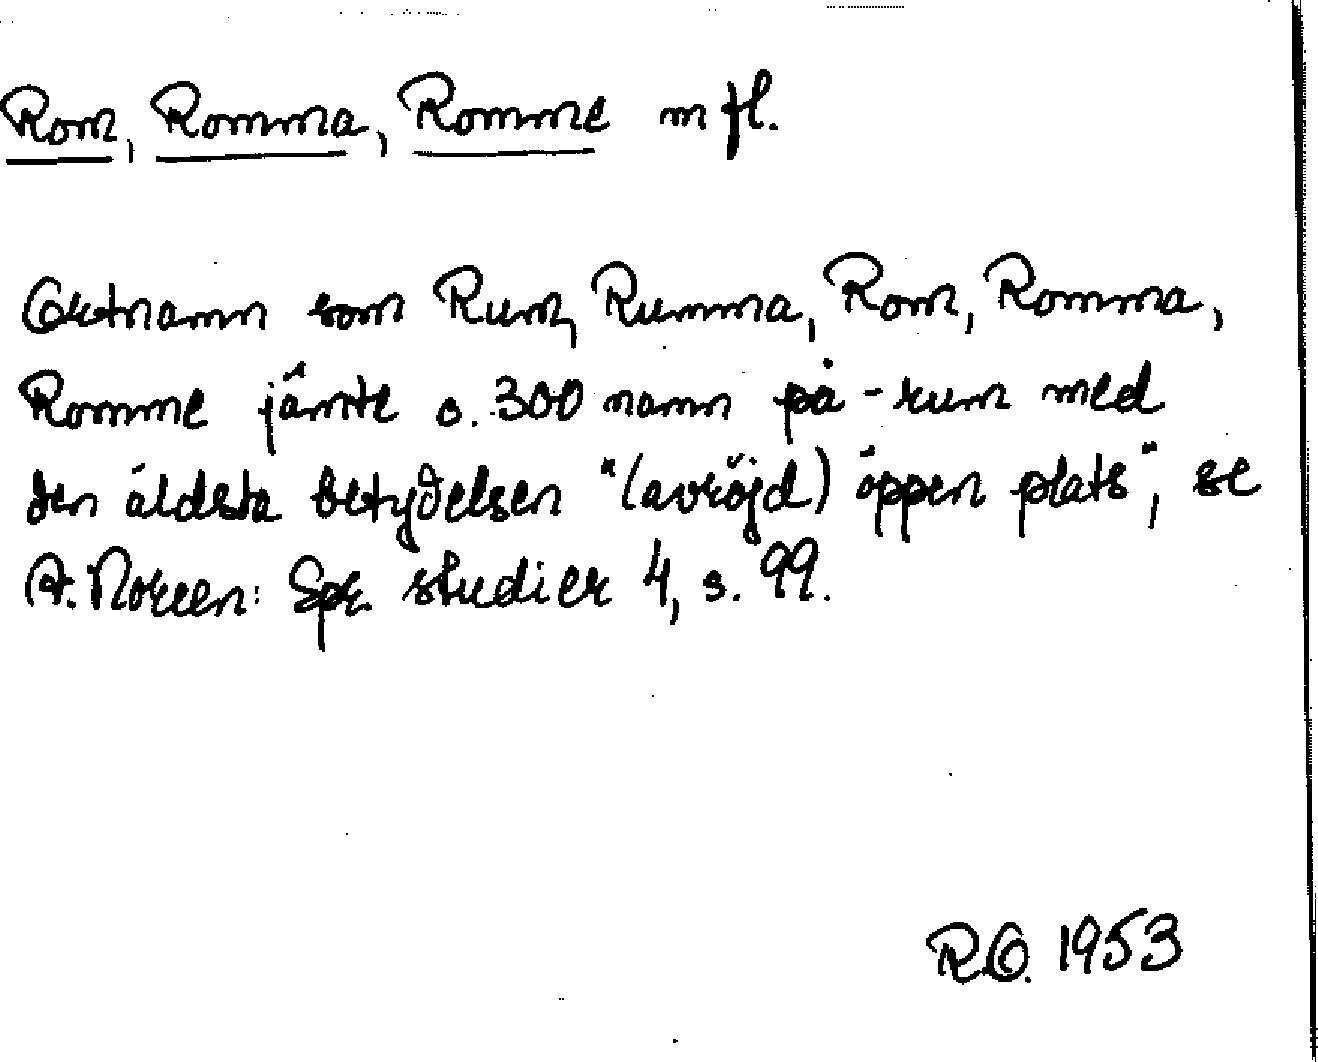 Rom, Romma, Romme m fl.
Ortnamn som Rum, Rumma, Rom, Romma,
Romme jämte o. 300 namn på -rum med
den äldsta betydelsen "(avröjd) öppen plats", se
A. Noreen: Spr. studier 4, s. 99.
R.O. 1953